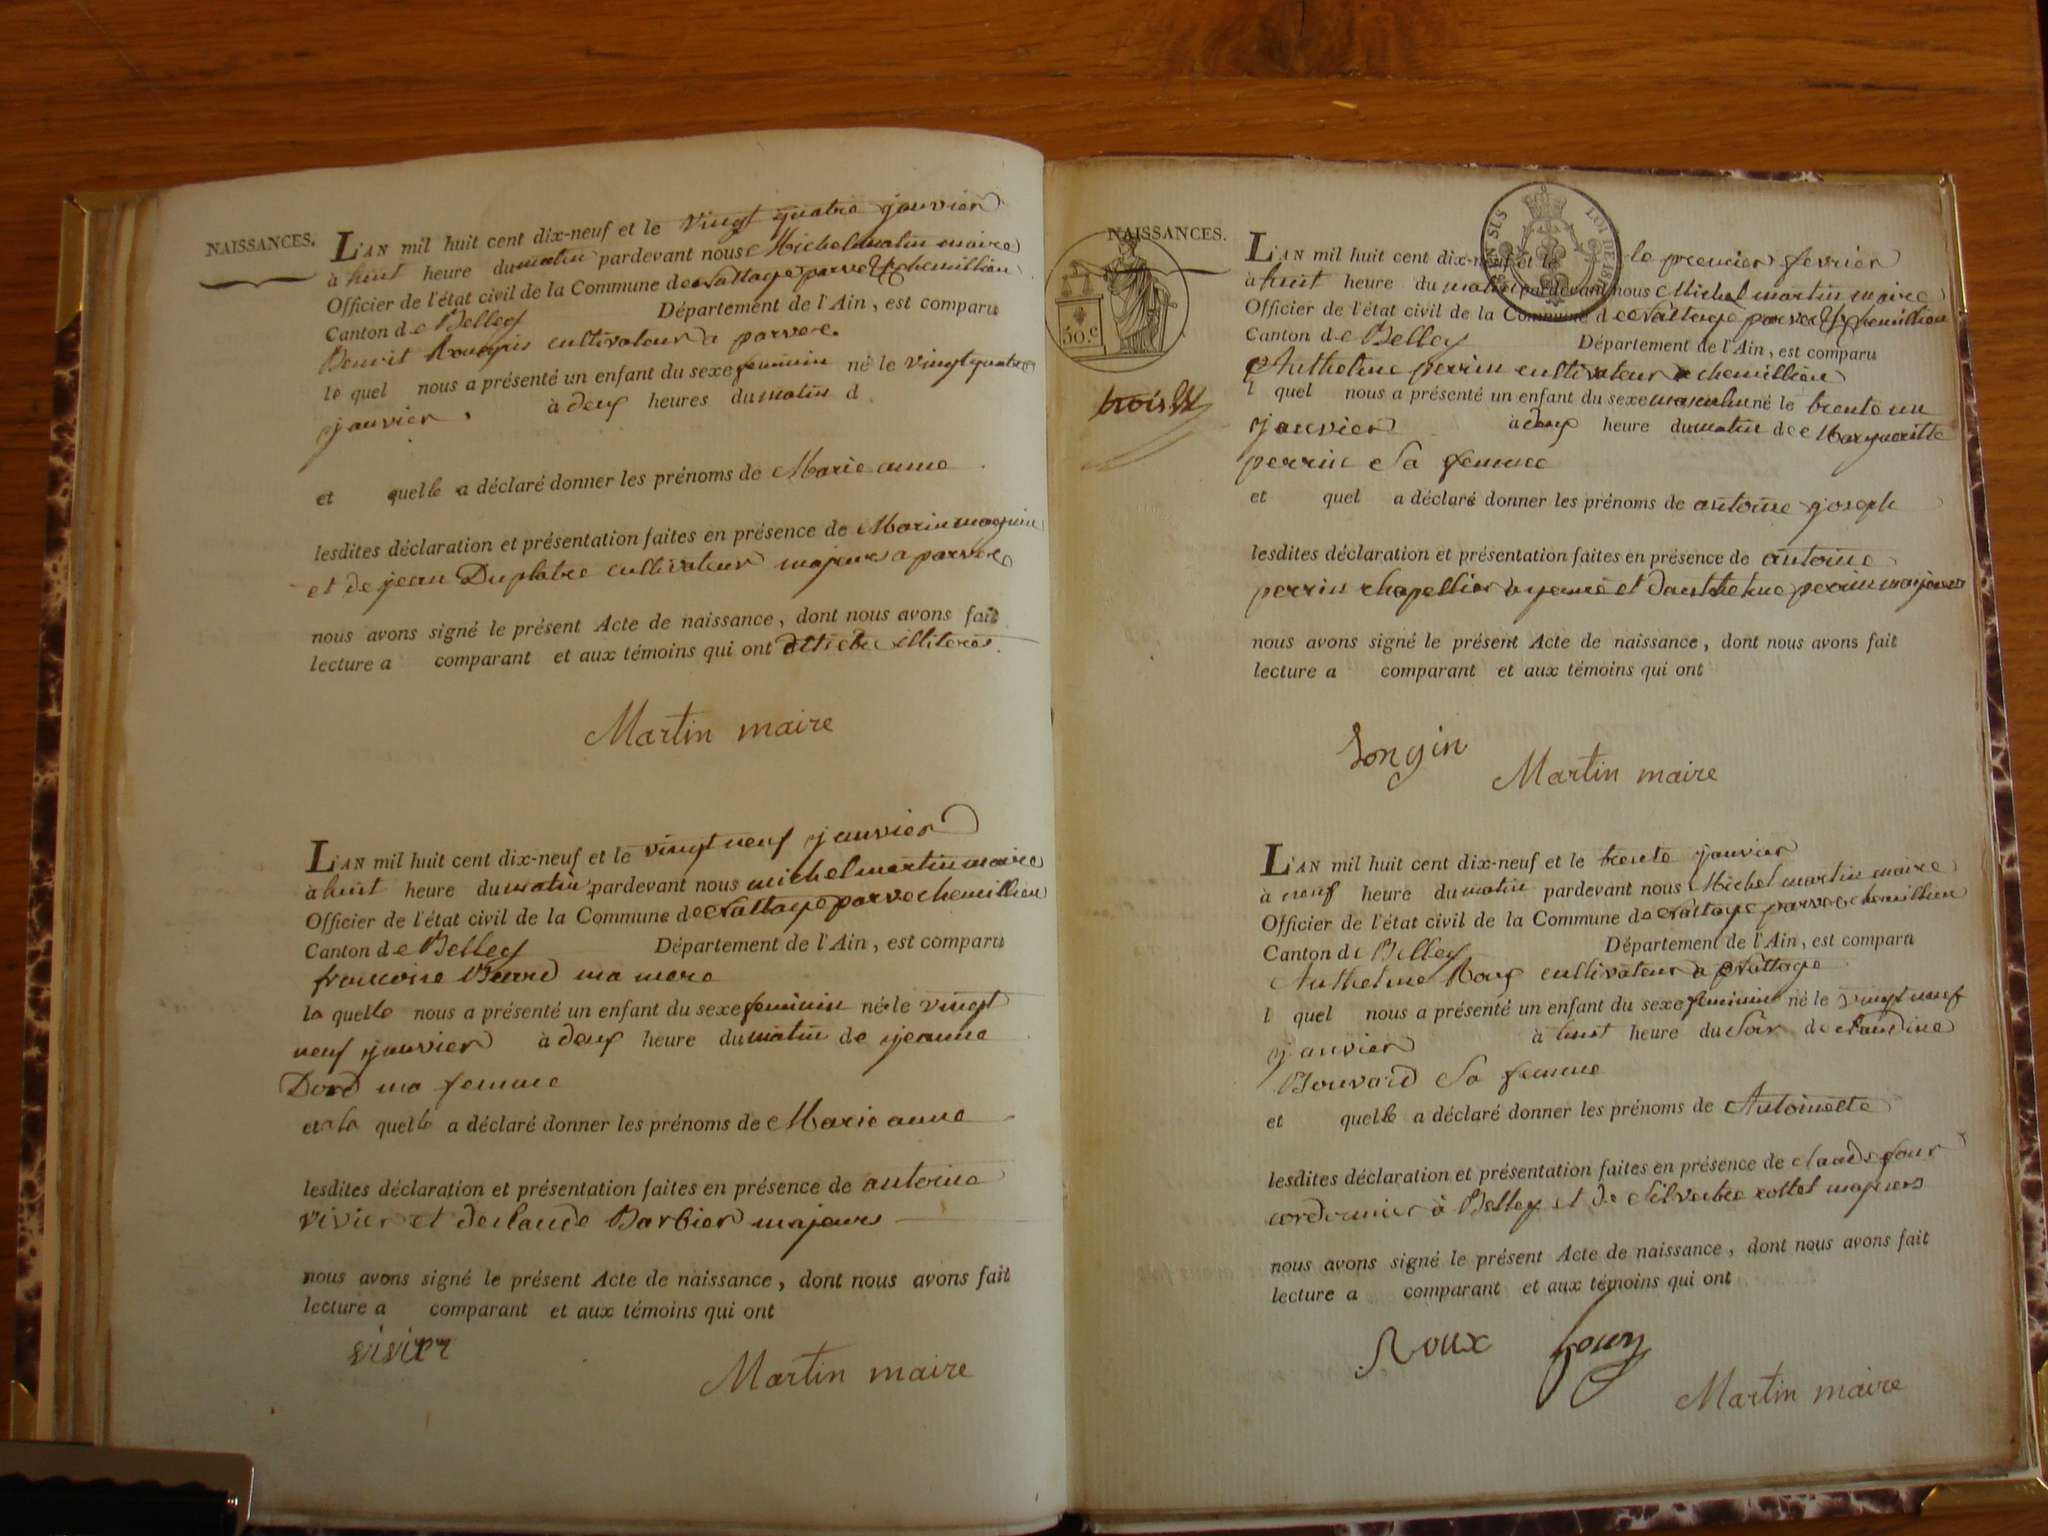 NAISSANCES.
L'AN mil huit cent dix-neuf et le vingt quatre janvier
à huit heure du matin pardevant nous Michel martin maire
Officier de l'état civil de la Commune de
Canton de Belley Département de l'Ain, est comparu
Benoit cultivateur a parve
le quel nous a présenté un enfant du sexe feminin né le vingt quatre
janvier à deux heures du matin d
et quelle a déclaré donner les prénoms de Marie anne
lesdites déclaration et présentation faites en présence de Marin
et de jean Duplatre cultivateur majeurs a parve
nous avons signé le présent Acte de naissance, dont nous avons fait
lecture a comparant et aux témoins qui ont illiteres
Martin maire
L'AN mil huit cent dix-neuf et le vingt neuf janvier
à huit heure du matin pardevant nous michel martin maire
Officier de l'état civil de la Commune de
Canton de Belley Département de l'Ain, est comparu
francoise ma mere
la quelle nous a présenté un enfant du sexe feminin né le vingt
neuf janvier à deux heure du matin de jeanne
Dord ma femme
et la quelle a déclaré donner les prénoms de Marie anne
lesdites déclaration et présentation faites en présence de antoine
vivier et de claude Barbier majeurs
nous avons signé le présent Acte de naissance, dont nous avons fait
lecture a comparant et aux témoins qui ont
vivier
Martin maire
NAISSANCES.
50.c
trois
LOI DE
L'AN mil huit cent dix-neuf et le le premier fevrier
à huit heure du matin pardevant nous Michel martin maire
Officier de l'état civil de la Commune de
Canton de Belley Département de l'Ain, est comparu
Anthelme perrin cultivateur a chemillieu
l quel nous a présenté un enfant du sexe masculin né le trente un
janvier à deux heure du matin de Margueritte
perrin Sa femme
et quel a déclaré donner les prénoms de antoine joseph
lesdites déclaration et présentation faites en présence de antoine
perrin chapellier a yenne et danthelme perrin majeurs
nous avons signé le présent Acte de naissance, dont nous avons fait
lecture a comparant et aux témoins qui ont
Songin
Martin maire
L'AN mil huit cent dix-neuf et le trente janvier
à neuf heure du matin pardevant nous Michel martin maire
Officier de l'état civil de la Commune de
Canton de Belley Département de l'Ain, est comparu
Anthelme Roux cultivateur a
l quel nous a présenté un enfant du sexe feminin né le vingt neuf
janvier à huit heure du Soir de claudine
Bouvard Sa femme
et quelle a déclaré donner les prénoms de Antoinette
lesdites déclaration et présentation faites en présence de claude four
cordonnier à Belley et de Silvestre collet majeurs
nous avons signé le présent Acte de naissance, dont nous avons fait
lecture a comparant et aux témoins qui ont
Roux four
Martin maire